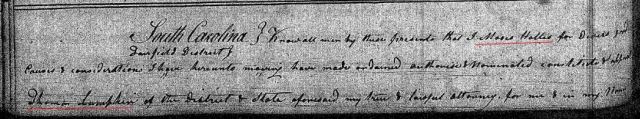 South Carolina } Know all men by these presents that I Moses Hollis for Divers good
Fairfield District }
Causes & consideration Thereunto moving have made ordained authorise & Nominated constitute &
Thomas Lumpkin of the District & State aforesaid my true & lawful attorney for me & in my Name